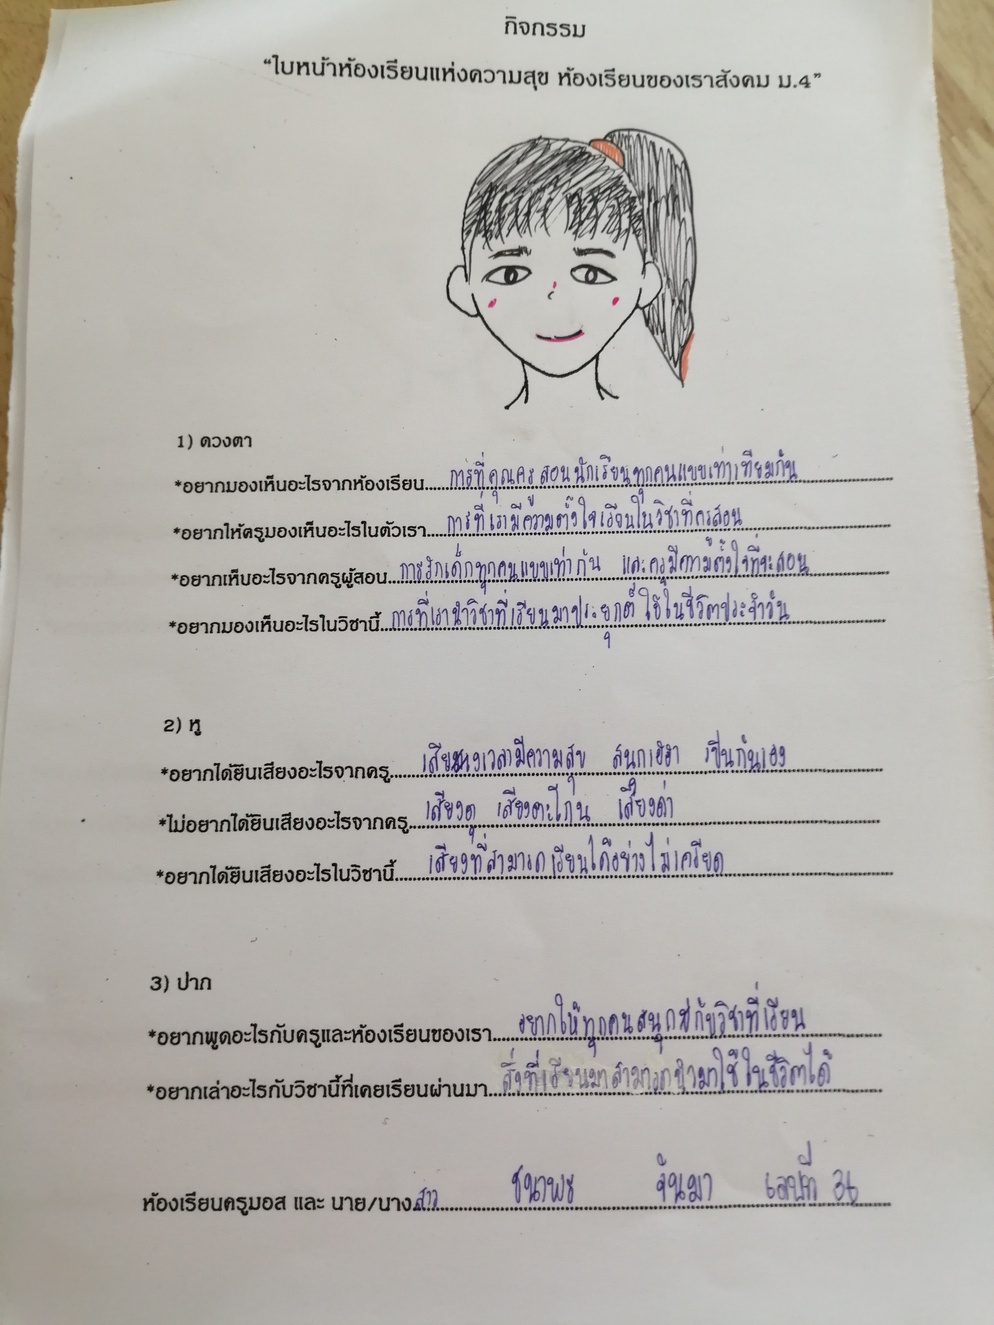 กิจกรรม
“ใบหน้าห้องเรียนแห่งความสุข ห้องเรียนของเราสังคม ม.4”
1) ดวงตา
*อยากมองเห็นอะไรจากห้องเรียน....การที่คุณครูสอนนักเรียนทุกคนแบบเท่าเทียมกัน
*อยากให้ครูมองเห็นอะไรในตัวเรา....การที่เรามีความตั้งใจเรียนในวิชาที่ครูสอน
*อยากเห็นอะไรจากครูผู้สอน....การรักเด็กทุกคนแบบเท่ากัน และครูมีความตั้งใจที่จะสอน
*อยากมองเห็นอะไรในวิชานี้....การที่เรานำวิชาที่เรียนมาประยุกต์ใช้ในชีวิตประจำวัน
2) หู
*อยากได้ยินเสียงอะไรจากครู....เวลามีความสุข สนุกเฮฮา เป็นกันเอง
*ไม่อยากได้ยินเสียงอะไรจากครู....เสียงดุ เสียงตะโกน เสียงด่า
*อยากได้ยินเสียงอะไรในวิชานี้....เสียงที่สามารถเรียนได้อย่างไม่เครียด
3) ปาก
*อยากพูดอะไรกับครูและห้องเรียนของเรา....อยากให้ทุกคนสนุกกับวิชาที่เรียน
*อยากเล่าอะไรกับวิชานี้ที่เคยเรียนผ่านมา....สิ่งที่เรียนมาสามารถนำมาใช้ในชีวิตได้
ห้องเรียนครูมอส และ นาย/นางสาว....จันมา เลขที่ 36